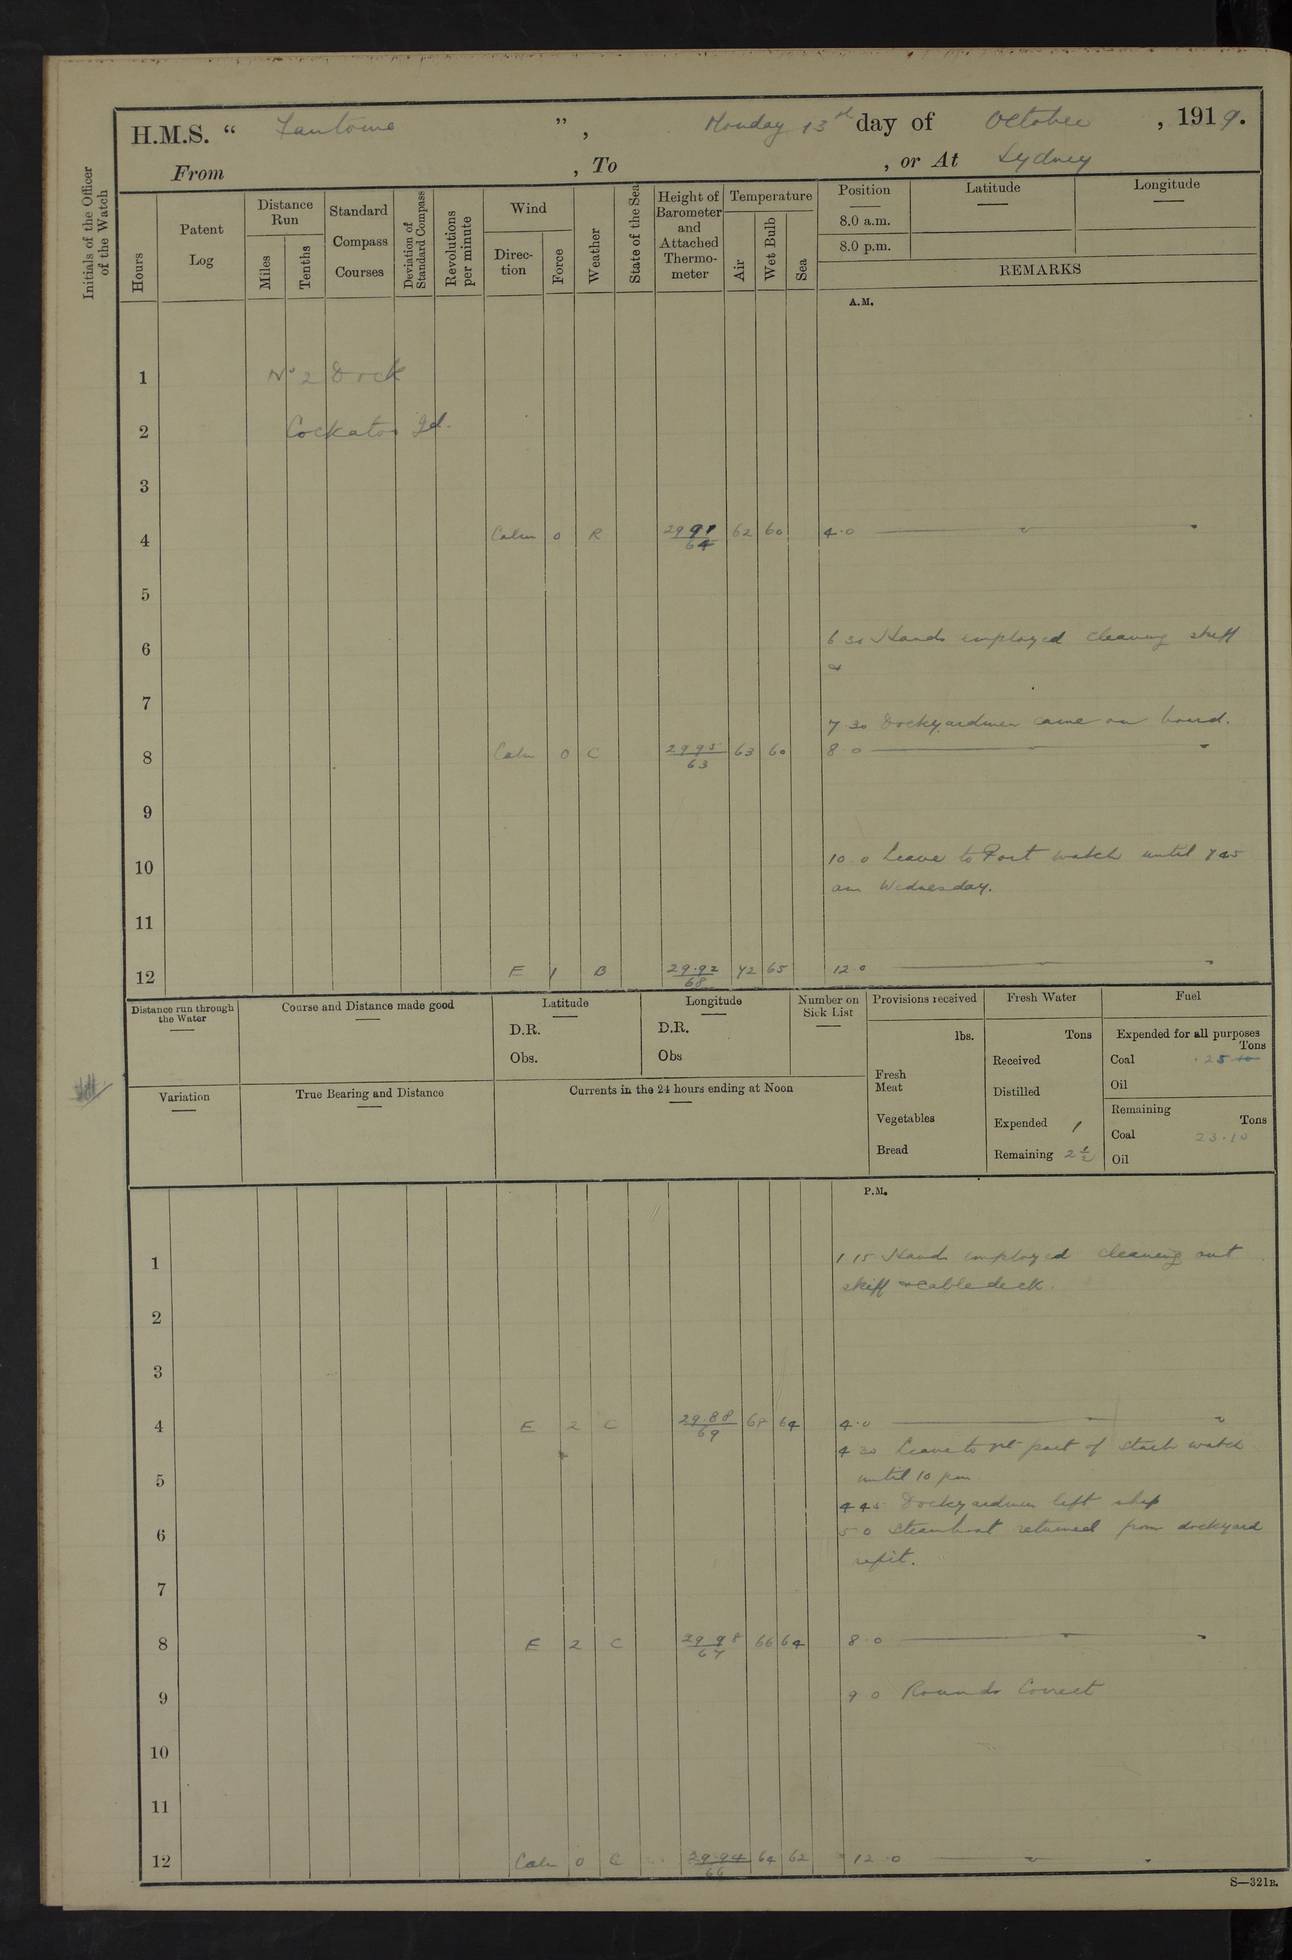 H.M.S. “ Fantome ”, Monday 13th day of October, 1919.
From , To , or At Sydney
Initials of the Officer of the Watch
Hours
Patent Log
Distance Run
Miles
Tenths
Standard Compass Courses
Deviation of Standard Compass
Revolutions per minute
Wind
Direction
Force
Weather
State of the Sea
Height of Barometer and Attached Thermometer
Temperature
Air
Wet Bulb
Sea
Position
8.0 a.m.
8.0 p.m.
Latitude
Longitude
REMARKS
A.M.
1 No 2 Dock
2 Cockatoo Id.
3
4 Calm 0 R 29 91 / 64 62 60 4.0 — " — "
5
6 6 30 Hands employed cleaning skiff
&
7
7 30 Dockyardmen came on board.
8 Calm 0 C 29 95 / 63 63 60 8.0 — " — "
9
10 10.0 Leave to Port watch until 7 45
am Wednesday.
11
12 E 1 B 29.92 / 68 72 65 12.0 — " — "
Distance run through the Water
Course and Distance made good
Latitude
D.R.
Obs.
Longitude
D.R.
Obs
Number on Sick List
Provisions received
lbs.
Fresh Meat
Vegetables
Bread
Fresh Water
Tons
Received
Distilled
Expended 1
Remaining 2 1/2
Fuel
Expended for all purposes
Tons
Coal .25
Oil
Remaining
Tons
Coal 23.10
Oil
Variation
True Bearing and Distance
Currents in the 24 hours ending at Noon
P.M.
1 1 15 Hands employed cleaning out
skiff & cable deck.
2
3
4 E 2 C 29.88 / 69 68 64 4.0 — " — "
4 30 Leave to part of Starb watch
5 until 10 pm
4 45 Dockyardmen left ship
6 5 0 Steamboat returned from dockyard
refit.
7
8 E 2 C 29 98 / 67 66 64 8.0 — " — "
9 9 0 Rounds Correct
10
11
12 Calm 0 C 29.94 / 66 64 62 12.0 — " — "
S—321B.